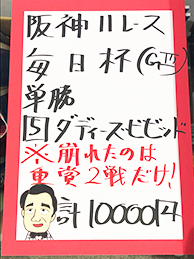 阪神11レース
毎日杯(GⅢ)
単勝
5ダディーズ・ビビッド
※崩れたのは
重賞2戦だけ!
計10000円